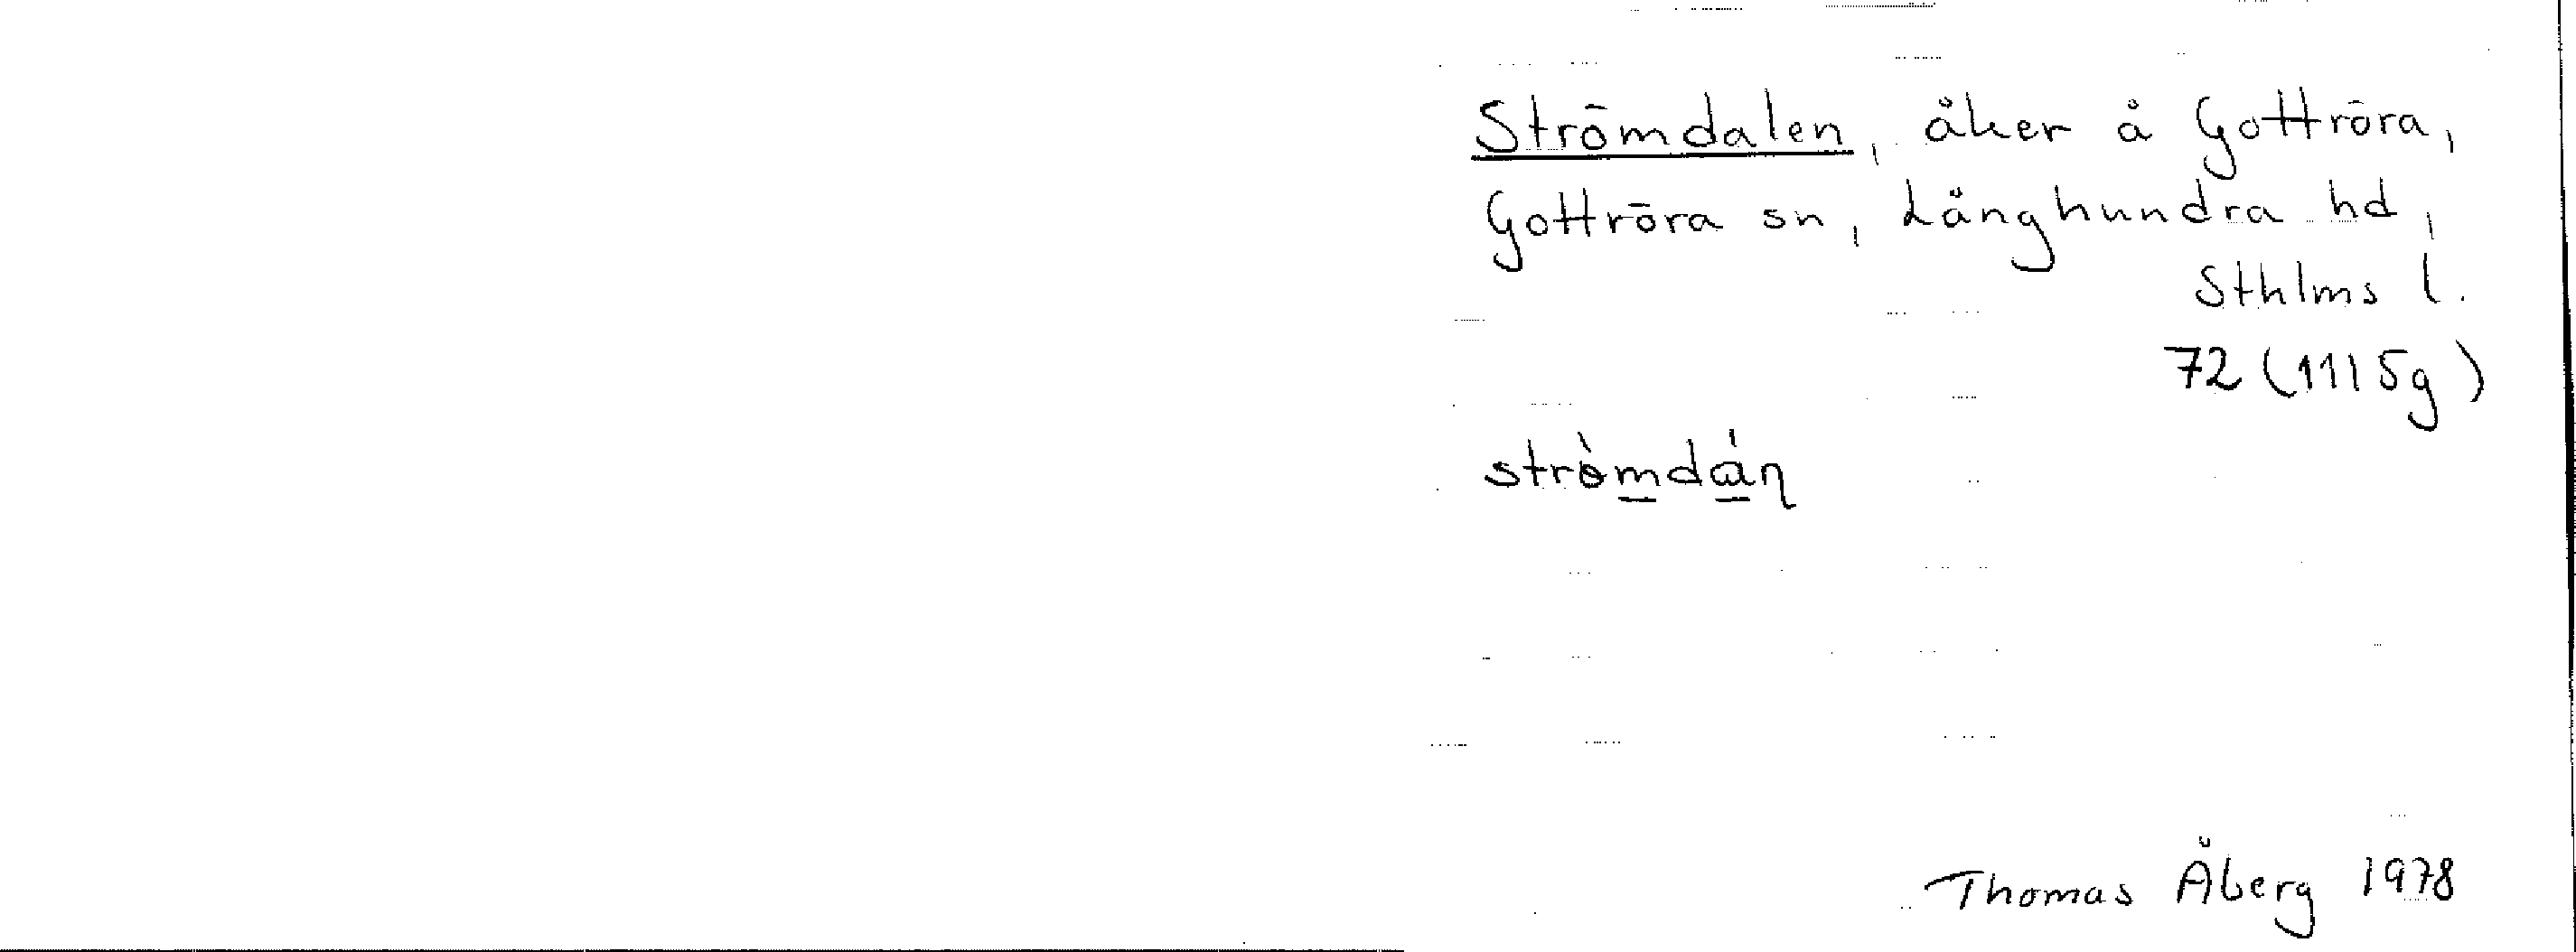 Strömdalen, åker å Gottröra,
Gottröra sn, Långhundra hd,
Sthlms l.
72 (1115g)
strèmdán
Thomas Åberg 1978